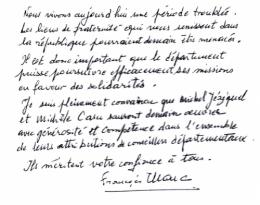 Nous vivons aujourd'hui une période troublée.
Les liens de fraternité qui nous unissent dans
la république pourraient demain être menacés.
Il est donc important que le département
puisse poursuivre efficacement ses missions
en faveur des solidarités.
Je suis pleinement convaincu que Michel Jézéquel
et Michèle Casu sauront demain œuvrer
avec générosité et compétence dans l'ensemble
de leurs attributions de conseillers départementaux.
Ils méritent votre confiance à tous.
François Marc